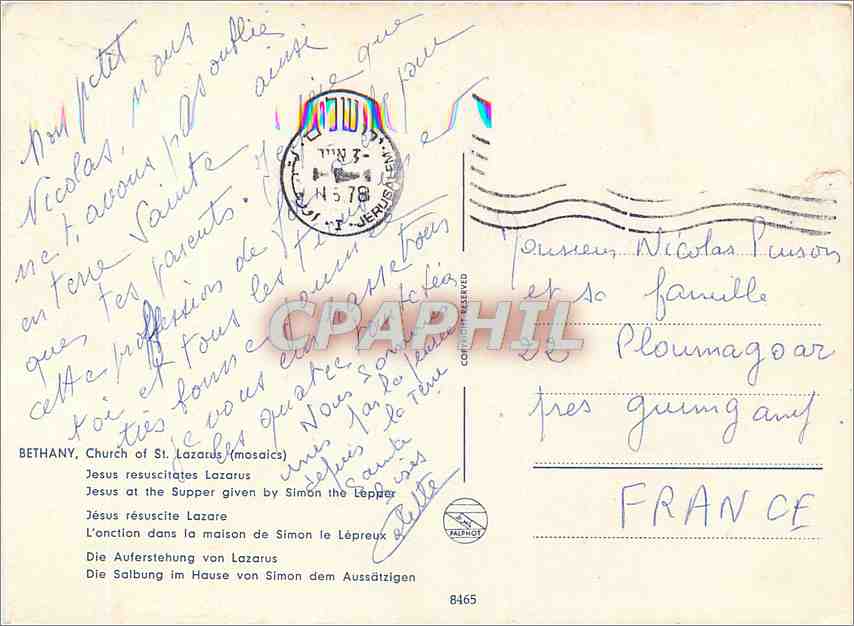 Mon petit
Nicolas, nous
ne t'avons pas oublié
en terre Sainte ainsi
que tes parents. que
cette profession de
toi et tous les
très bonne
je vous embrasse tous
les quatre
Nous
unis par la pensée
depuis la Terre
Sainte
Bises
Colette
JERUSALEM
5 78
COPYRIGHT RESERVED
CPAPHIL
Monsieur Nicolas Pinson
et sa famille
22 Ploumagoar
près Guingamp
FRANCE
BETHANY, Church of St. Lazarus (mosaics)
Jesus resuscitates Lazarus
Jesus at the Supper given by Simon the Lepper
Jésus résuscite Lazare
L'onction dans la maison de Simon le Lépreux
Die Auferstehung von Lazarus
Die Salbung im Hause von Simon dem Aussätzigen
PALPHOT
8465